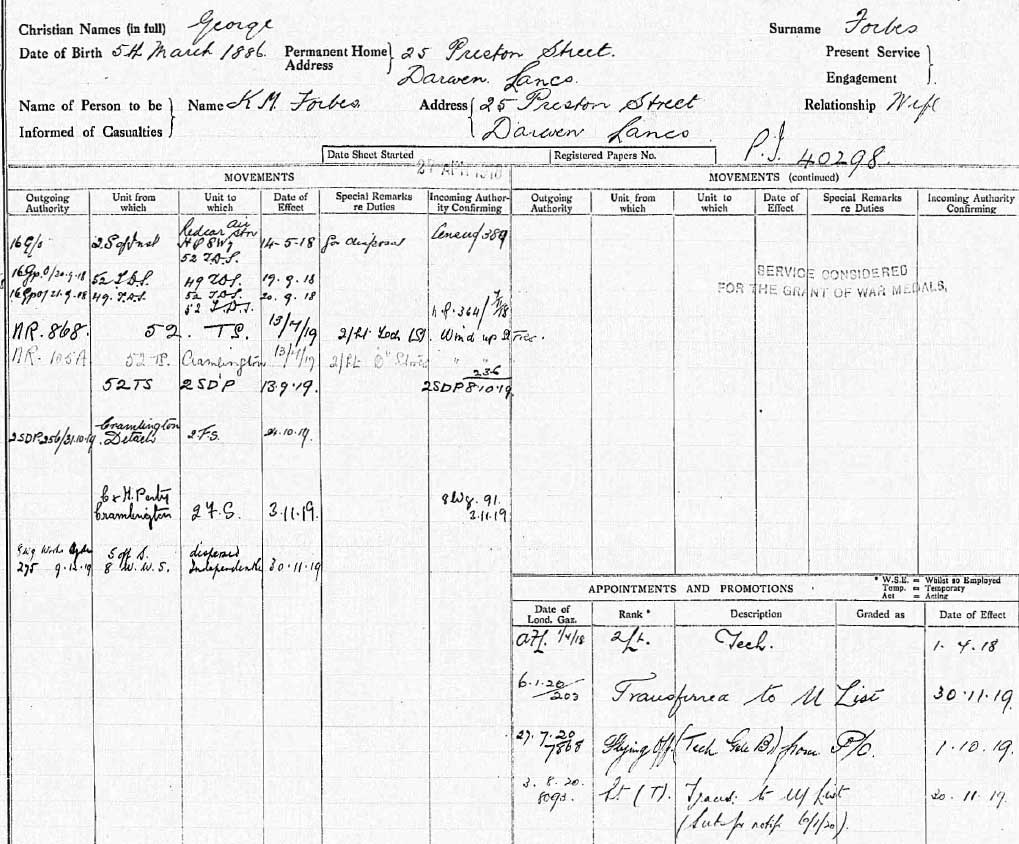 Christian Names (in full) George Surname Forbes
Date of Birth 5th March 1886. Permanent Home Address 25 Preston Street. Present Service
Darwen. Lancs. Engagement
Name of Person to be Informed of Casualties Name K. M. Forbes. Address 25 Preston Street Relationship Wife
Darwen Lancs
Date Sheet Started Registered Papers No. P.I. 40298.
MOVEMENTS
Outgoing Authority Unit from which Unit to which Date of Effect Special Remarks re Duties Incoming Authority Confirming
Redcar Air Stn
16 G/o 2 S of Inst 14-5-18 for disposal Census/389
52 T.D.S.
16Gp.O/20.9.18 52 T.D.S. 49 T.D.S. 19.9.18
16Gp O/21.9.18 49.T.D.S. 52 T.D.S. 20.9.18
52 T.D.S.
AR. 868. 52. TS. 13/7/19 2/Lt Tech (S). Wind up
AR. 105A 52 TS. Cramlington 13/7/19 2/Lt "O" Stores " " "
236
52TS 2SDP 13.9.19. 2SDP 8.10.19.
2SDP.256/31.10.19 Cramlington Detach 2 F.S. 24.10.19.
C & H. Party Cramlington 2 F.S. 3.11.19. 8 Wg. 91. 3.11.19.
275 9.12.19 S off S. 8 W.W.S. dispersed Independently 30.11.19
MOVEMENTS (continued)
Outgoing Authority Unit from which Unit to which Date of Effect Special Remarks re Duties Incoming Authority Confirming
SERVICE CONSIDERED
FOR THE GRANT OF WAR MEDALS.
* W.S.E. = Whilst so Employed
Temp. = Temporary
Act = Acting
APPOINTMENTS AND PROMOTIONS
Date of Lond. Gaz. Rank * Description Graded as Date of Effect
1/4/18 2/Lt. Tech. 1.4.18
6.1.20/203 Transferred to U List 30.11.19
27.7.20/7868 Flying Off. (Tech Gde B) from P/O. 1.10.19.
3.8.20. 8093. Lt (T). Trans. to U List 30.11.19.
(Subs for notifn 6/1/20).